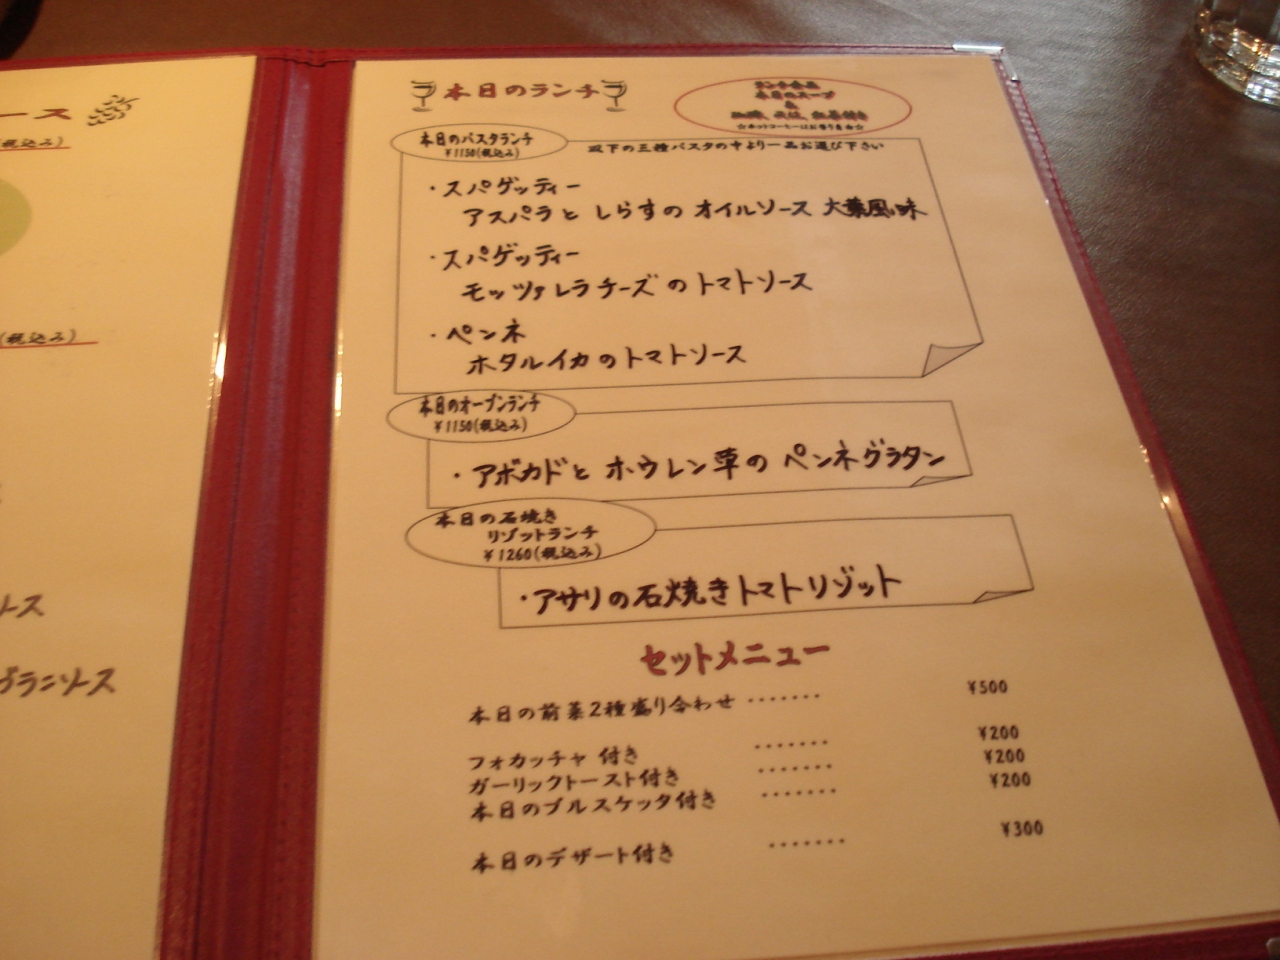 ース
税込み)
(税込み)
ース
グラニソース
本日のランチ
ランチ全品
本日のスープ
&
珈琲、又は、紅茶付き
☆ホットコーヒーはお替り自由☆
本日のパスタランチ
¥1150(税込み)
以下の三種パスタの中より一品お選び下さい
・スパゲッティー
アスパラと しらすの オイルソース 大葉風味
・スパゲッティー
モッツァレラチーズのトマトソース
・ペンネ
ホタルイカのトマトソース
本日のオーブンランチ
¥1150(税込み)
・アボカドと ホウレン草の ペンネグラタン
本日の石焼き
リゾットランチ
¥1260(税込み)
・アサリの石焼きトマトリゾット
セットメニュー
本日の前菜2種盛り合わせ ・・・・・・・ ¥500
フォカッチャ 付き ・・・・・・・ ¥200
ガーリックトースト付き ・・・・・・・ ¥200
本日のブルスケッタ付き ・・・・・・・ ¥200
本日のデザート付き ・・・・・・・ ¥300